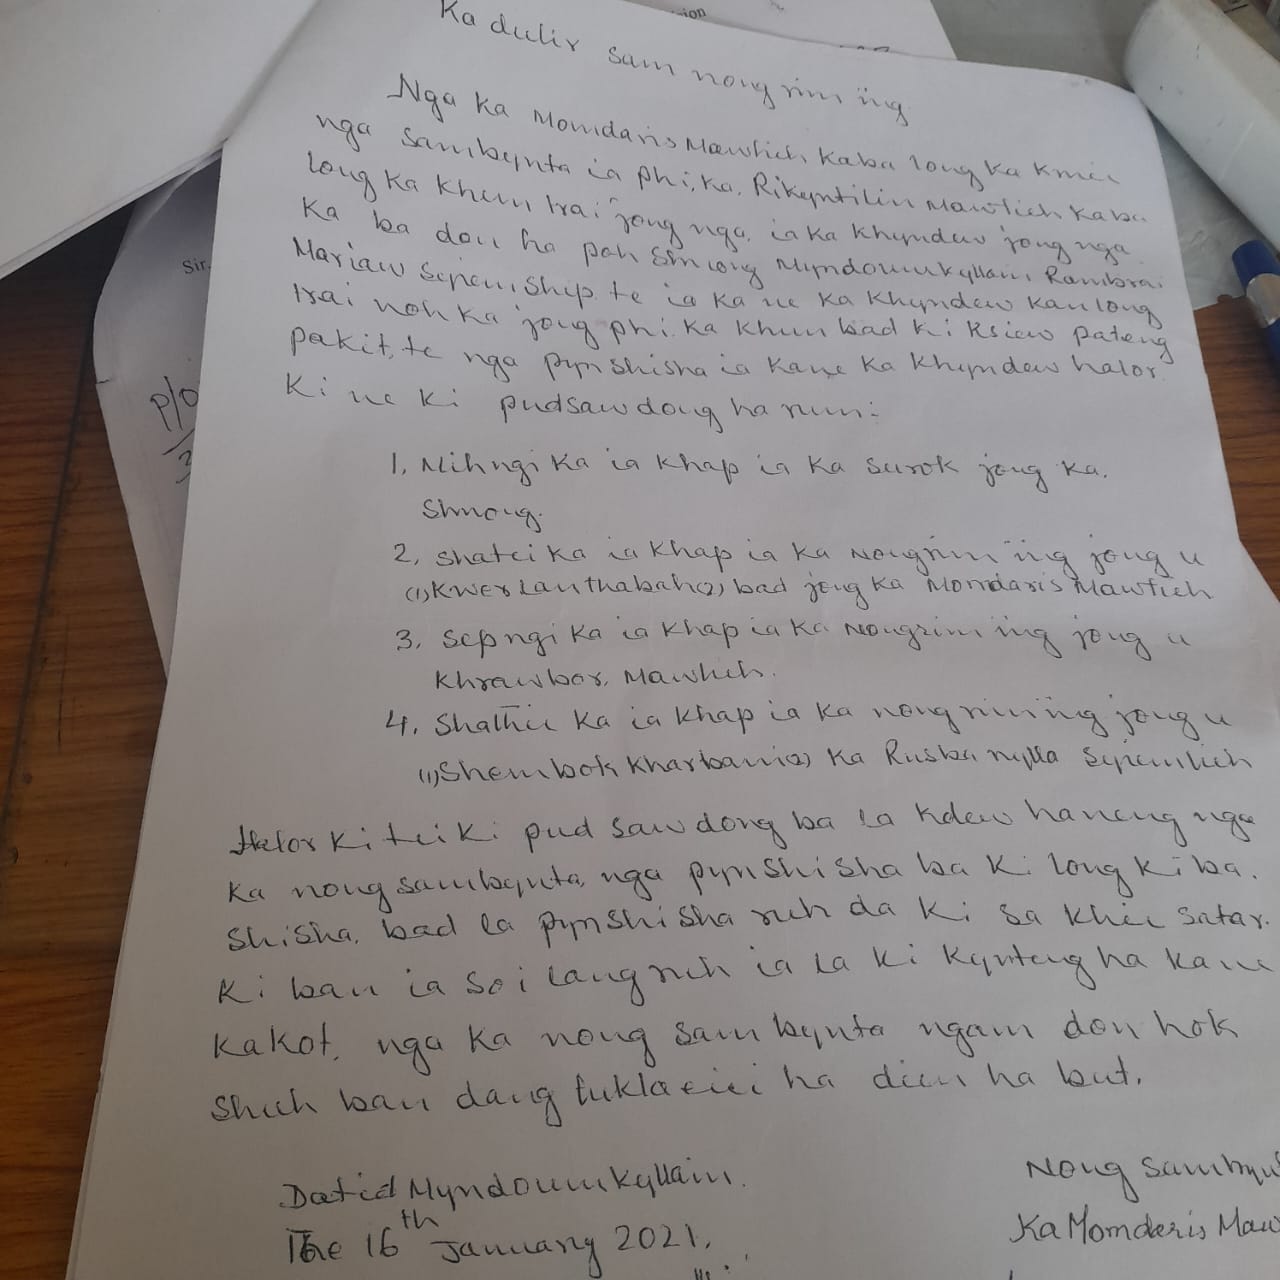 ion
Ka dulir sam nongrim ïing
Nga Ka Momdaris Mawlieh, Kaba long Ka Kmie
nga Sambynta ia phi, Ka. Rikyntilin Mawlieh Kaba
long Ka Khun trai jong nga, ia Ka Khyndew jong nga
Ka ba don ha pan Shnong Myndoumkyllain, Rambrai
Mariaw Sepemship. te ia Ka ne Ka Khyndew Kan long
trai noh Ka jong phi. Ka Khun bad Ki Ksiew Pateng
pakit, te nga pynshisha ia Kane Ka Khyndew halor
Ki ne Ki pudsawdong harum:
1, Mihngi Ka ia Khap ia Ka Surok jong Ka.
Shnong.
2, Shatei Ka ia Khap ia Ka Nongrim ïing jong u
(1) Kwerlanthabah (2) bad jong Ka Momdaris Mawlieh
3, Sepngi Ka ia Khap ia Ka Nongrim ïing jong u
Khrawbor, Mawlieh.
4, Shathie Ka ia Khap ia Ka nongrim ïing jong u
(1) Shembok Kharbani (2) Ka Rusba nylla Sepemlieh
Halor Ki tei Ki pud Sawdong ba la Kdew haneng nga
Ka nong sambynta, nga pynshisha ba Ki long Ki ba.
Shisha, bad la pynshisha ruh da Ki Sa Khie Satar.
Ki ban ia Soi lang ruh ia la Ki Kyrteng ha Kane
Kakot, nga Ka nong Sambynta ngam don hok
Shuh ban dang tukla eiei ha dien ha but.
Datied Myndoumkyllain.
The 16th January 2021,
Nong Sambyn
Ka Momdaris Maw
Sir,
P/O
3